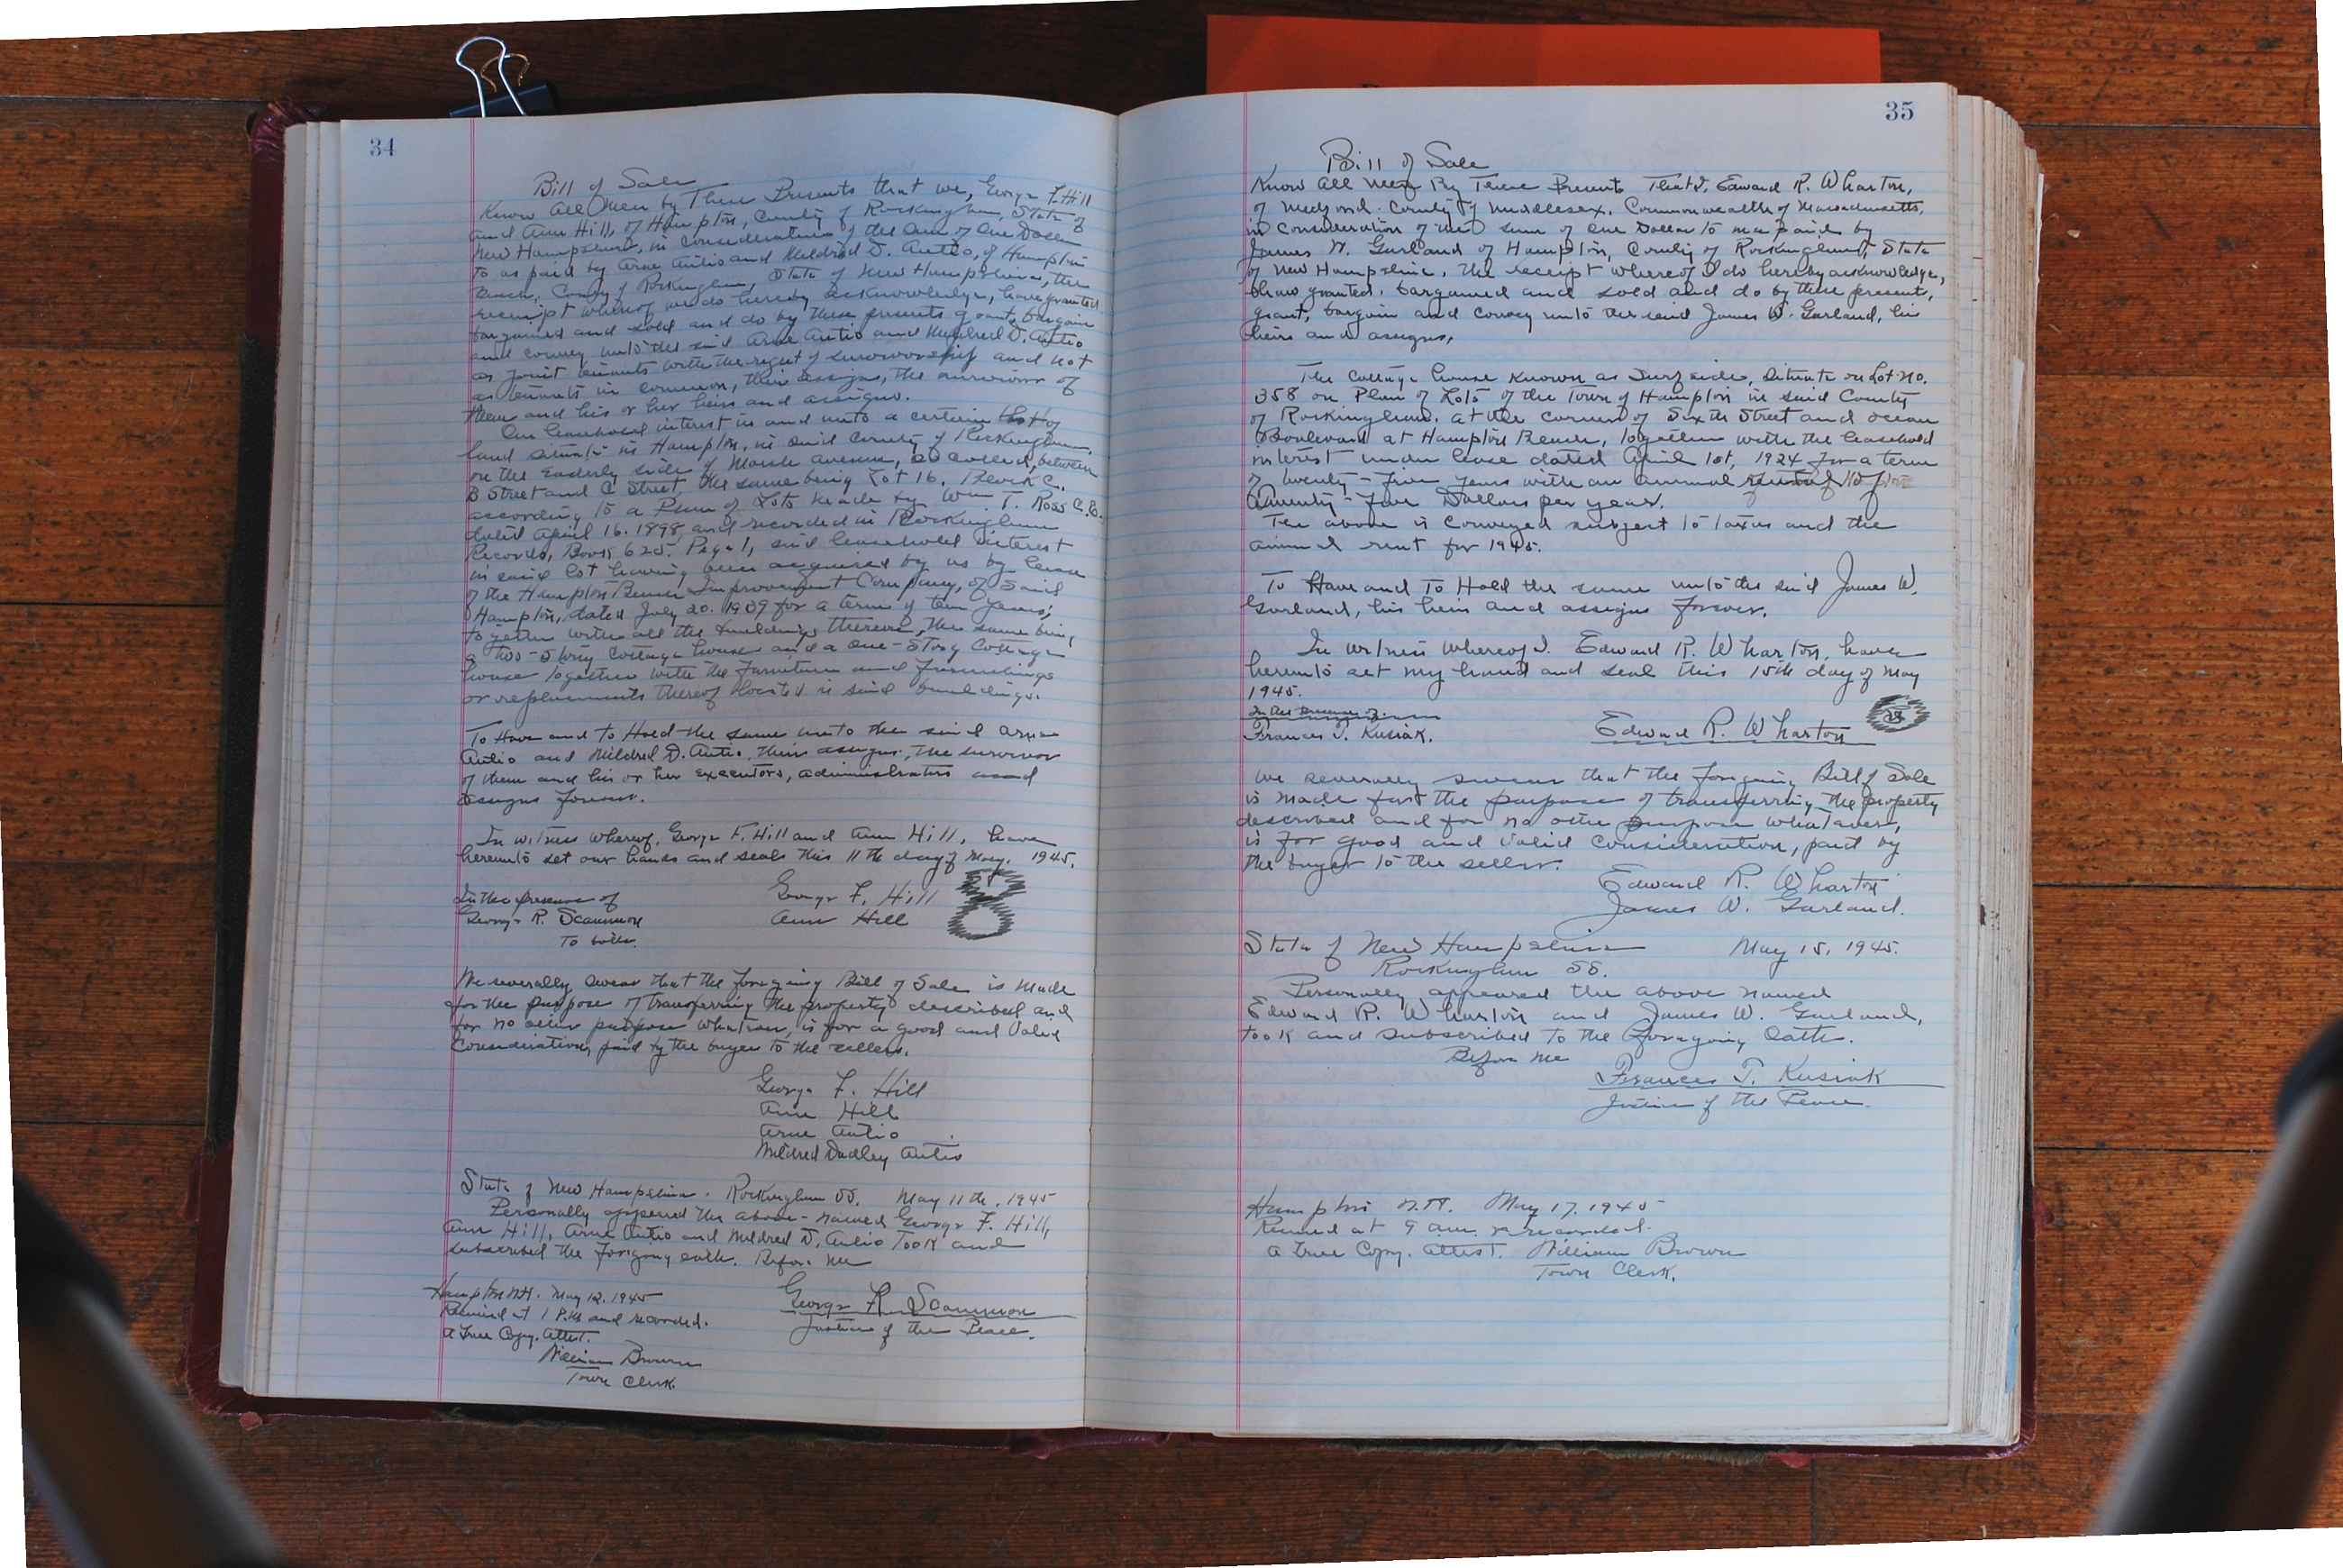 34
Bill of Sale
Know All Men by These Presents that we, George F. Hill
and Ann Hill, of Hampton, County of Rockingham, State of
New Hampshire, in consideration of the sum of One Dollar
to us paid by Arne Autio and Mildred D. Autio, of Hampton
Beach, County of Rockingham, State of New Hampshire, the
receipt whereof we do hereby acknowledge, have granted
bargained and sold and do by these presents grant, bargain
and convey unto the said Arne Autio and Mildred D. Autio
as joint tenants with the right of survivorship and not
as tenants in common, their assigns, the survivor of
them and his or her heirs and assigns.
Our leasehold interest in and unto a certain lot of
land situate in Hampton, in said County of Rockingham
on the Easterly side of Marsh Avenue, so called, between
B Street and C Street the same being Lot 16, Block C.
according to a Plan of Lots made by Wm T. Ross C.E.
dated April 16. 1898, and recorded in Rockingham
Records, Book 625. Page 1, said leasehold interest
in said lot having been acquired by us by lease
of the Hampton Beach Improvement Company, of said
Hampton, dated July 20. 1939 for a term of ten years;
together with all the buildings thereon, the same being
a two-story cottage house and a one-story cottage
house together with the furniture and furnishings
or replacements thereof located in said buildings.
To Have and to Hold the same unto the said Arne
Autio and Mildred D. Autio, their assigns, the survivor
of them and his or her executors, administrators and
assigns forever.
In witness whereof, George F. Hill and Ann Hill, have
hereunto set our hands and seals this 11th day of May. 1945.
In the presence of
George F. Hill
George R. Scammon
Ann Hill
To both.
We severally swear that the foregoing Bill of Sale is made
for the purpose of transferring the property described and
for no other purpose whatever, is for a good and valid
consideration, paid by the buyer to the sellers.
George F. Hill
Ann Hill
Arne Autio
Mildred Dudley Autio
State of New Hampshire. Rockingham SS. May 11th, 1945
Personally appeared the above-named George F. Hill,
Ann Hill, Arne Autio and Mildred D. Autio took and
subscribed the foregoing oath. Before me
George R. Scammon
Justice of the Peace.
Hampton N.H. May 12, 1945
Received at 1 P.M. and recorded.
A True Copy. Attest.
William Brown
Town Clerk.
35
Bill of Sale
Know All Men By These Presents That I, Edward R. Wharton,
of Medford. County of Middlesex. Commonwealth of Massachusetts,
in consideration of the sum of One Dollar to me paid by
James W. Garland of Hampton, County of Rockingham, State
of New Hampshire, the receipt whereof I do hereby acknowledge,
have granted, bargained and sold and do by these present,
grant, bargain and convey unto the said James W. Garland, his
heirs and assigns,
The cottage house known as Surfside, situate on Lot No.
358 on Plan of Lots of the Town of Hampton in said County
of Rockingham. at the corner of Sixth Street and Ocean
Boulevard at Hampton Beach, together with the leasehold
interest under lease dated April 1st, 1924 for a term
of twenty-five years with an annual rental of
Twenty-five Dollars per year.
The above is conveyed subject to taxes and the
annual rent for 1945.
To Have and To Hold the same unto the said James W.
Garland, his heirs and assigns forever.
In witness whereof I. Edward R. Wharton, have
hereunto set my hand and seal this 15th day of May
1945.
In the presence of.
Frances T. Kusiak.
Edward R. Wharton
We severally swear that the foregoing Bill of Sale
is made for the purpose of transferring the property
described and for no other purpose whatever,
is for good and valid consideration, paid by
the buyer to the seller.
Edward R. Wharton
James W. Garland.
State of New Hampshire May 15, 1945.
Rockingham SS.
Personally appeared the above named
Edward R. Wharton and James W. Garland,
took and subscribed to the foregoing oath.
Before me
Frances T. Kusiak
Justice of the Peace.
Hampton N.H. May 17. 1945
Received at 9 a.m. & recorded.
A True Copy. Attest. William Brown
Town Clerk.